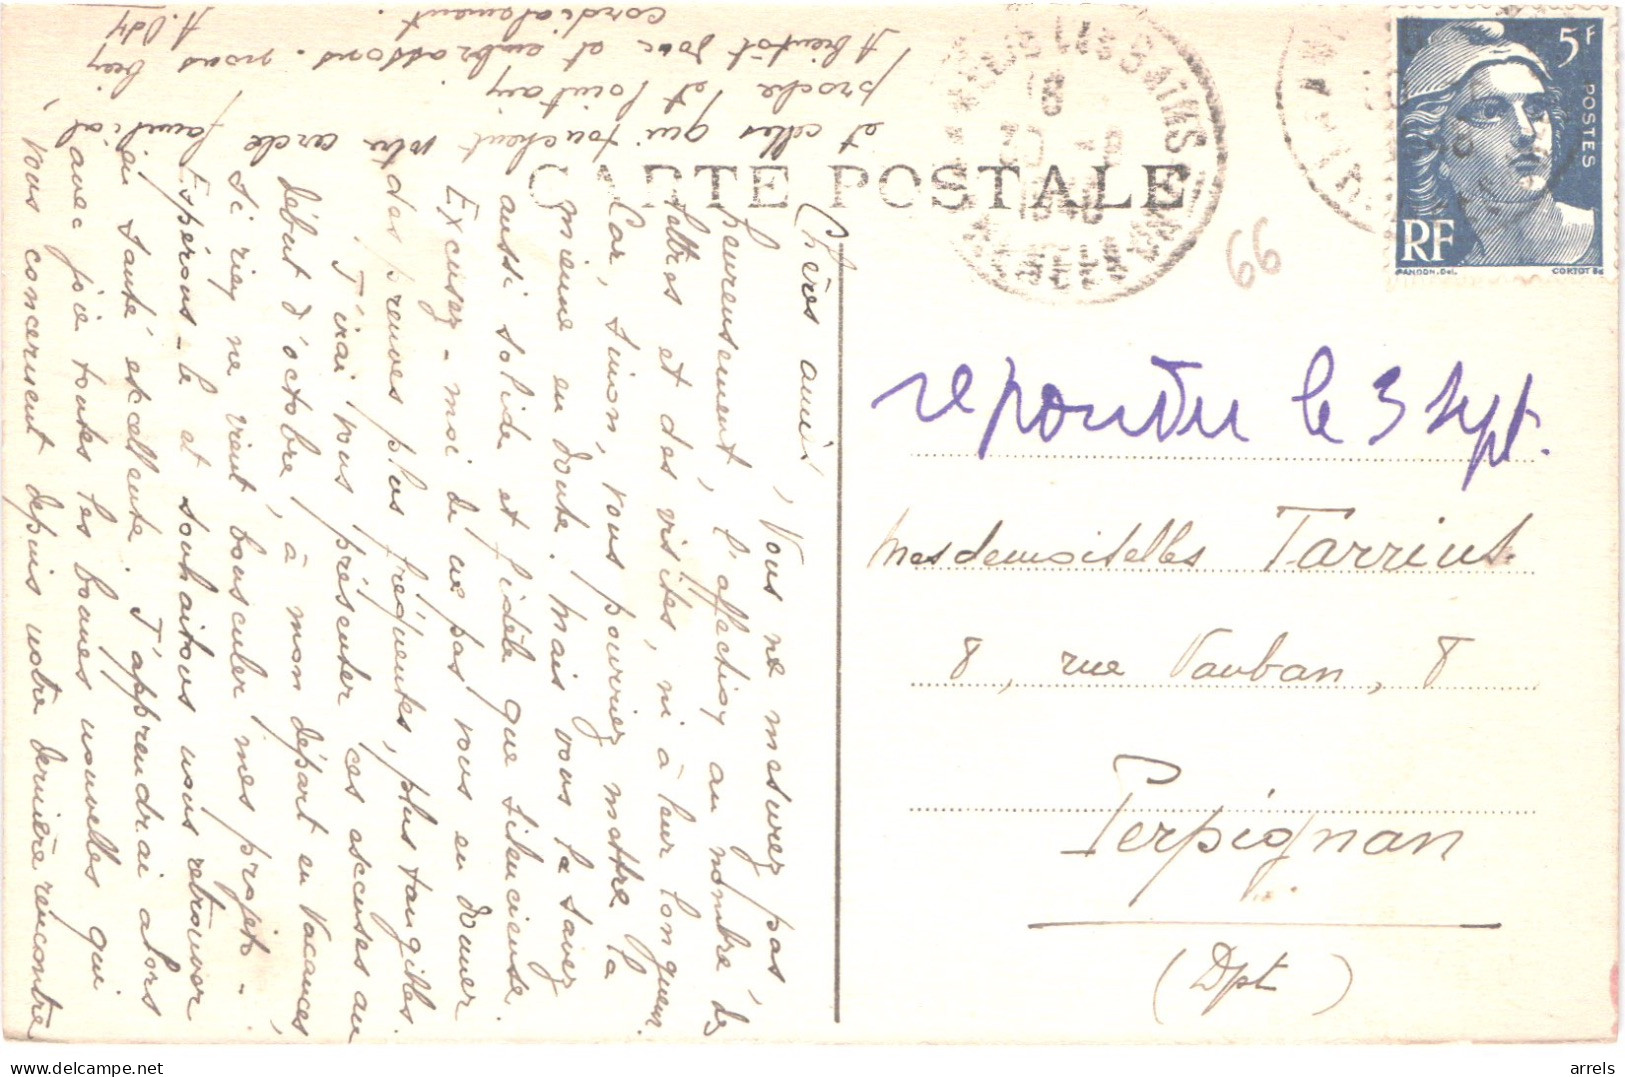 CARTE POSTALE
Chères amies,
Vous ne mesurez pas,
heureusement, l'affection au nombre des
lettres et des visites, ni à leur longueur.
Car, sinon, vous pourriez mettre la
mienne en doute. Mais vous la savez
aussi solide et fidèle que silencieuse.
Excusez-moi de ne pas vous en donner
des preuves plus fréquentes, plus tangibles.
J'irai vous présenter ces excuses au
début d'octobre, à mon départ en vacances,
si rien ne vient bousculer mes projets.
Espérons-le et souhaitons nous retrouver
en santé excellente. J'apprendrai alors
avec joie toutes les bonnes nouvelles qui
vous concernent depuis notre dernière rencontre
et celles qui touchent votre cercle familial
proche et lointain
A bientôt donc et embrassons-nous bien
cordialement.
5F
POSTES
RF
GANDON. Del.
CORTOT Sc
66
repondu le 3 sept.
Mesdemoiselles Tarrius
8, rue Vauban, 8
Perpignan
(Dpt)
arrels